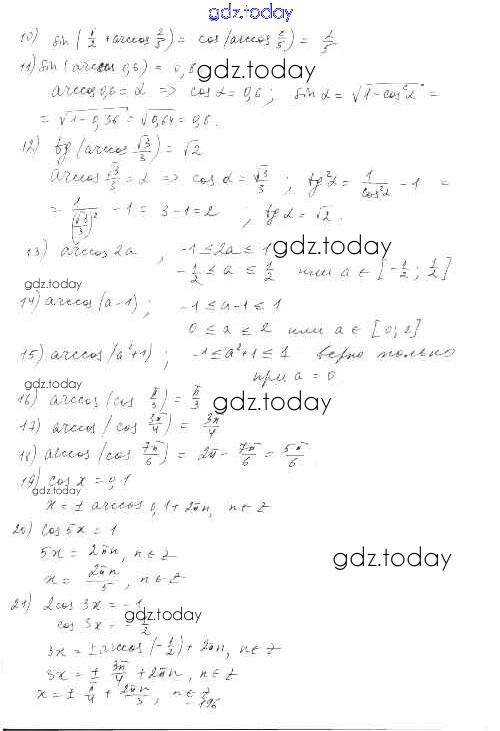 gdz.today
10) sin(1/2 + arccos 2/5) = cos(arccos 2/5) = 2/5
11) sin(arccos 0,6) = 0,8 gdz.today
arccos 0,6 = α => cos α = 0,6; sin α = √(1-cos²α) =
= √(1-0,36) = √0,64 = 0,6.
12) tg(arccos √3/3) = √2
arccos √3/3 = α => cos α = √3/3; tg²α = 1/cos²α - 1 =
= 1/(√3/3)² - 1 = 3-1 = 2; tg α = √2.
13) arccos 2a, -1 ≤ 2a ≤ 1 gdz.today
gdz.today -1/2 ≤ a ≤ 1/2 или a ∈ [-1/2; 1/2]
14) arccos(a-1); -1 ≤ a-1 ≤ 1
0 ≤ a ≤ 2 или a ∈ [0; 2]
15) arccos(a²+1); -1 ≤ a²+1 ≤ 1 верно только
gdz.today при a = 0
16) arccos(cos π/3) = π/3 gdz.today
17) arccos(cos 3π/4) = 3π/4
18) arccos(cos 7π/6) = 2π - 7π/6 = 5π/6
19) cos x = 0,1
gdz.today
x = ± arccos 0,1 + 2πn, n ∈ Z
20) cos 5x = 1
5x = 2πn, n ∈ Z gdz.today
x = 2πn/5, n ∈ Z
21) 2cos 3x = -1 gdz.today
cos 3x = -1/2
3x = ± arccos(-1/2) + 2πn, n ∈ Z
3x = ± 3π/4 + 2πn, n ∈ Z
x = ± π/4 + 2πn/3, n ∈ Z
- 196